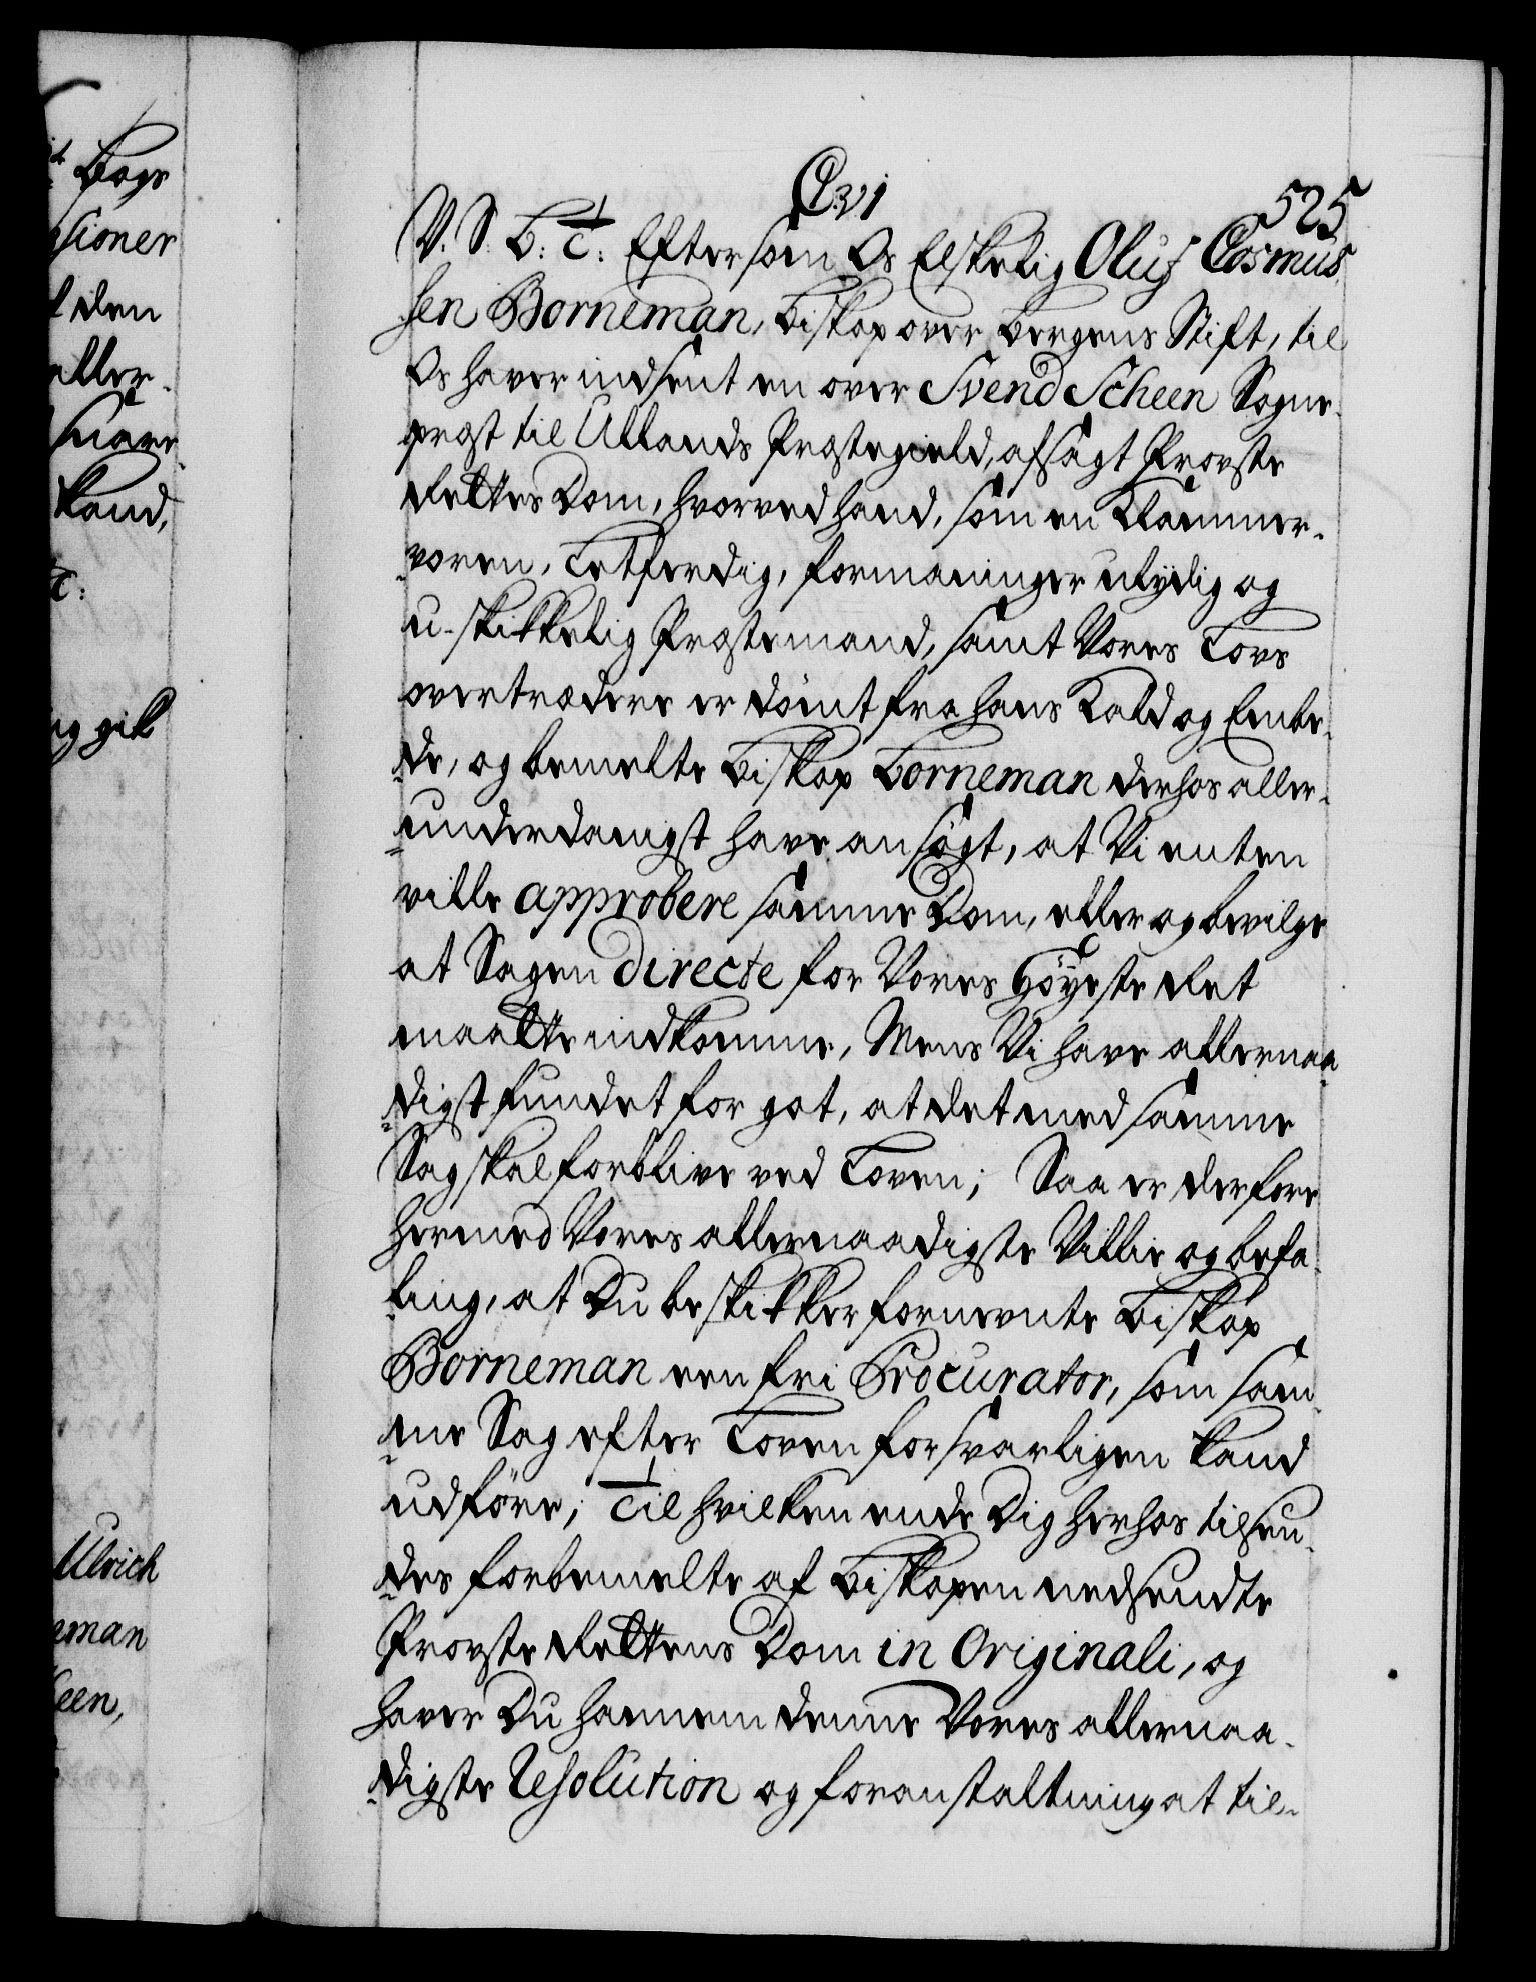 525
V. S. B: T: Eftersom Os Elskelig Oluf Cosmus,
sen Borneman, Biskop over Bergens Stift, til
Os haver indsent en over Svend Scheen Sogne-
præst til Ullands Præstegield, afsagt Provste
Rettes Dom, hvorved hand, som en Klammer-
voren, Letferdig, formaninger ulydig og
u-skikkelig Præstemand, samt Vores Lovs
overtrædere er dömt fra hans Kald og Embe-
de, og bemelte Biskop Borneman derhos aller-
underdanigst have ansögt, at Vi enten
ville approbere samme Dom, eller og bevilge
at Sagen directe for Vores Höyeste Ret
maatte indkomme, Mens Vi have allernaa-
digst fundet for got, at det med samme
Sag skal forblive ved Loven; Saa er derfore
hermed Vores allernaadigste Villie og befa-
ling, at Du beskikker fornevnte Biskop
Borneman een fri Procurator, som sam-
me Sag efter Loven forsvarligen kand
udföre; Til hvilken ende Dig herhos tilsen-
des forbemelte af Biskopen nedsendte
Provste Rettens Dom in Originali, og
haver Du hannem denne Vores allernaa-
digste Resolution og foranstaltning at til-
Bogs
den
aller-
kand,
gik
Ulrich